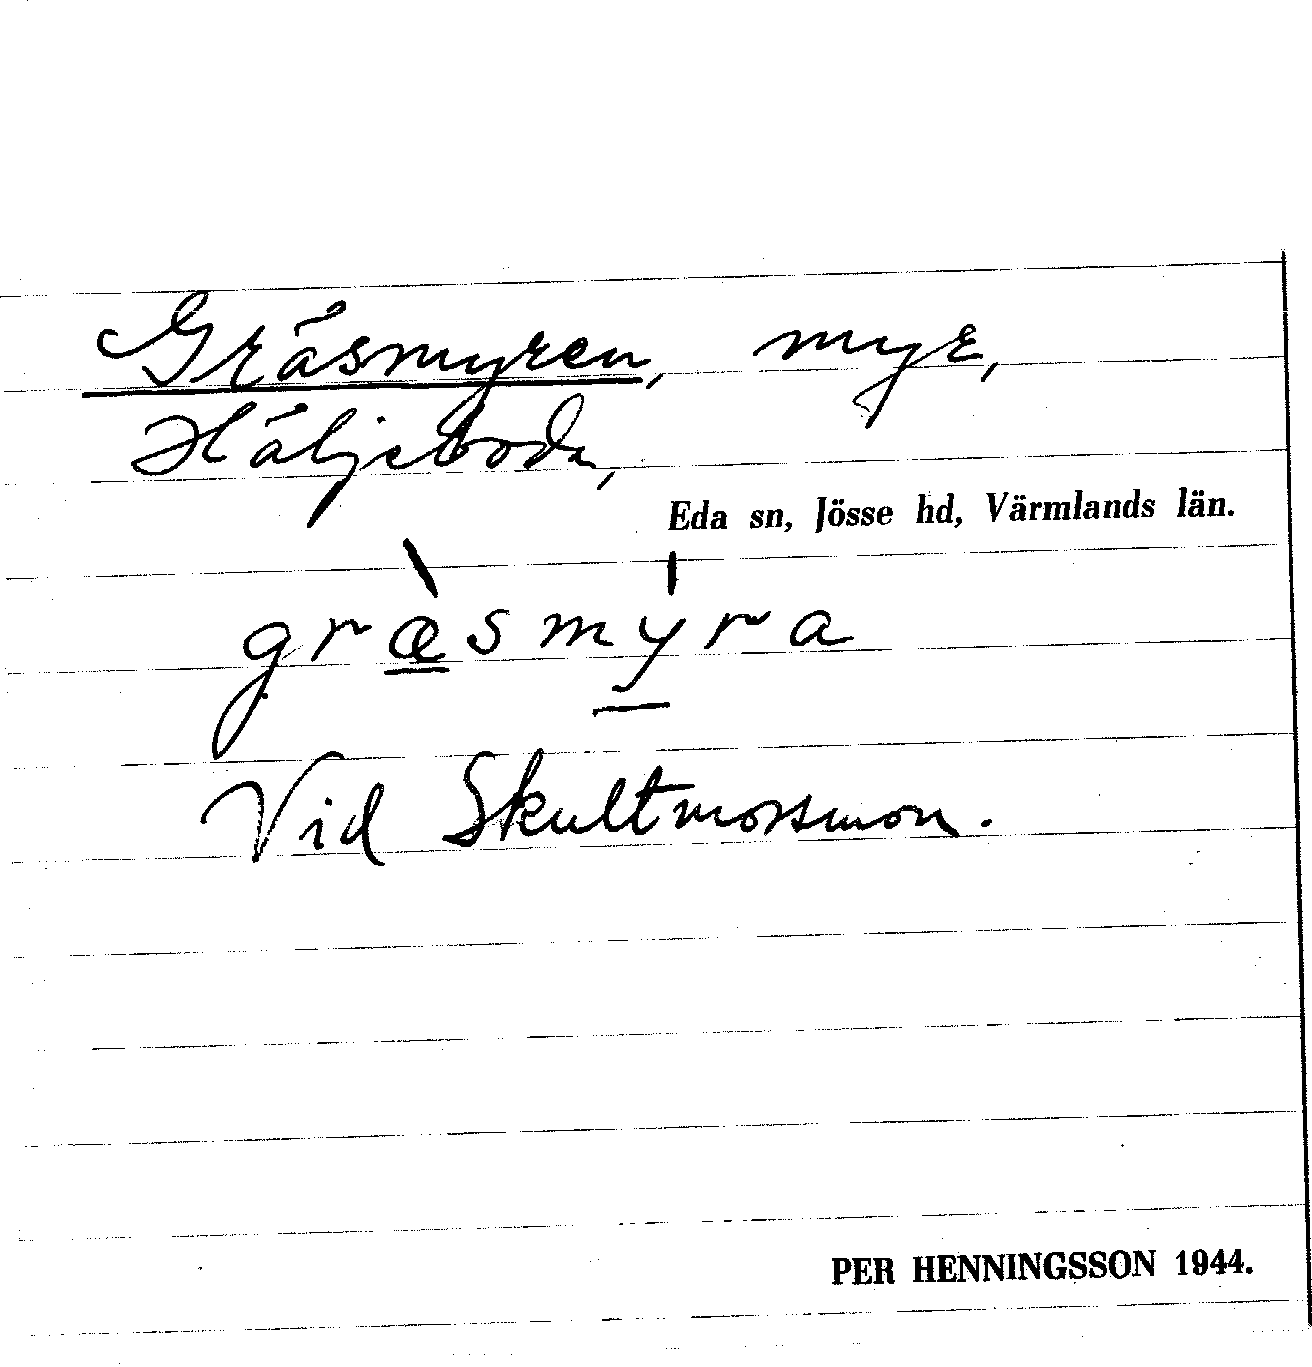 Gräsmyren, myr,
Häljeboda,
Eda sn, Jösse hd, Värmlands län.
græ̀smy̍ra
Vid Skultmossmon.
PER HENNINGSSON 1944.